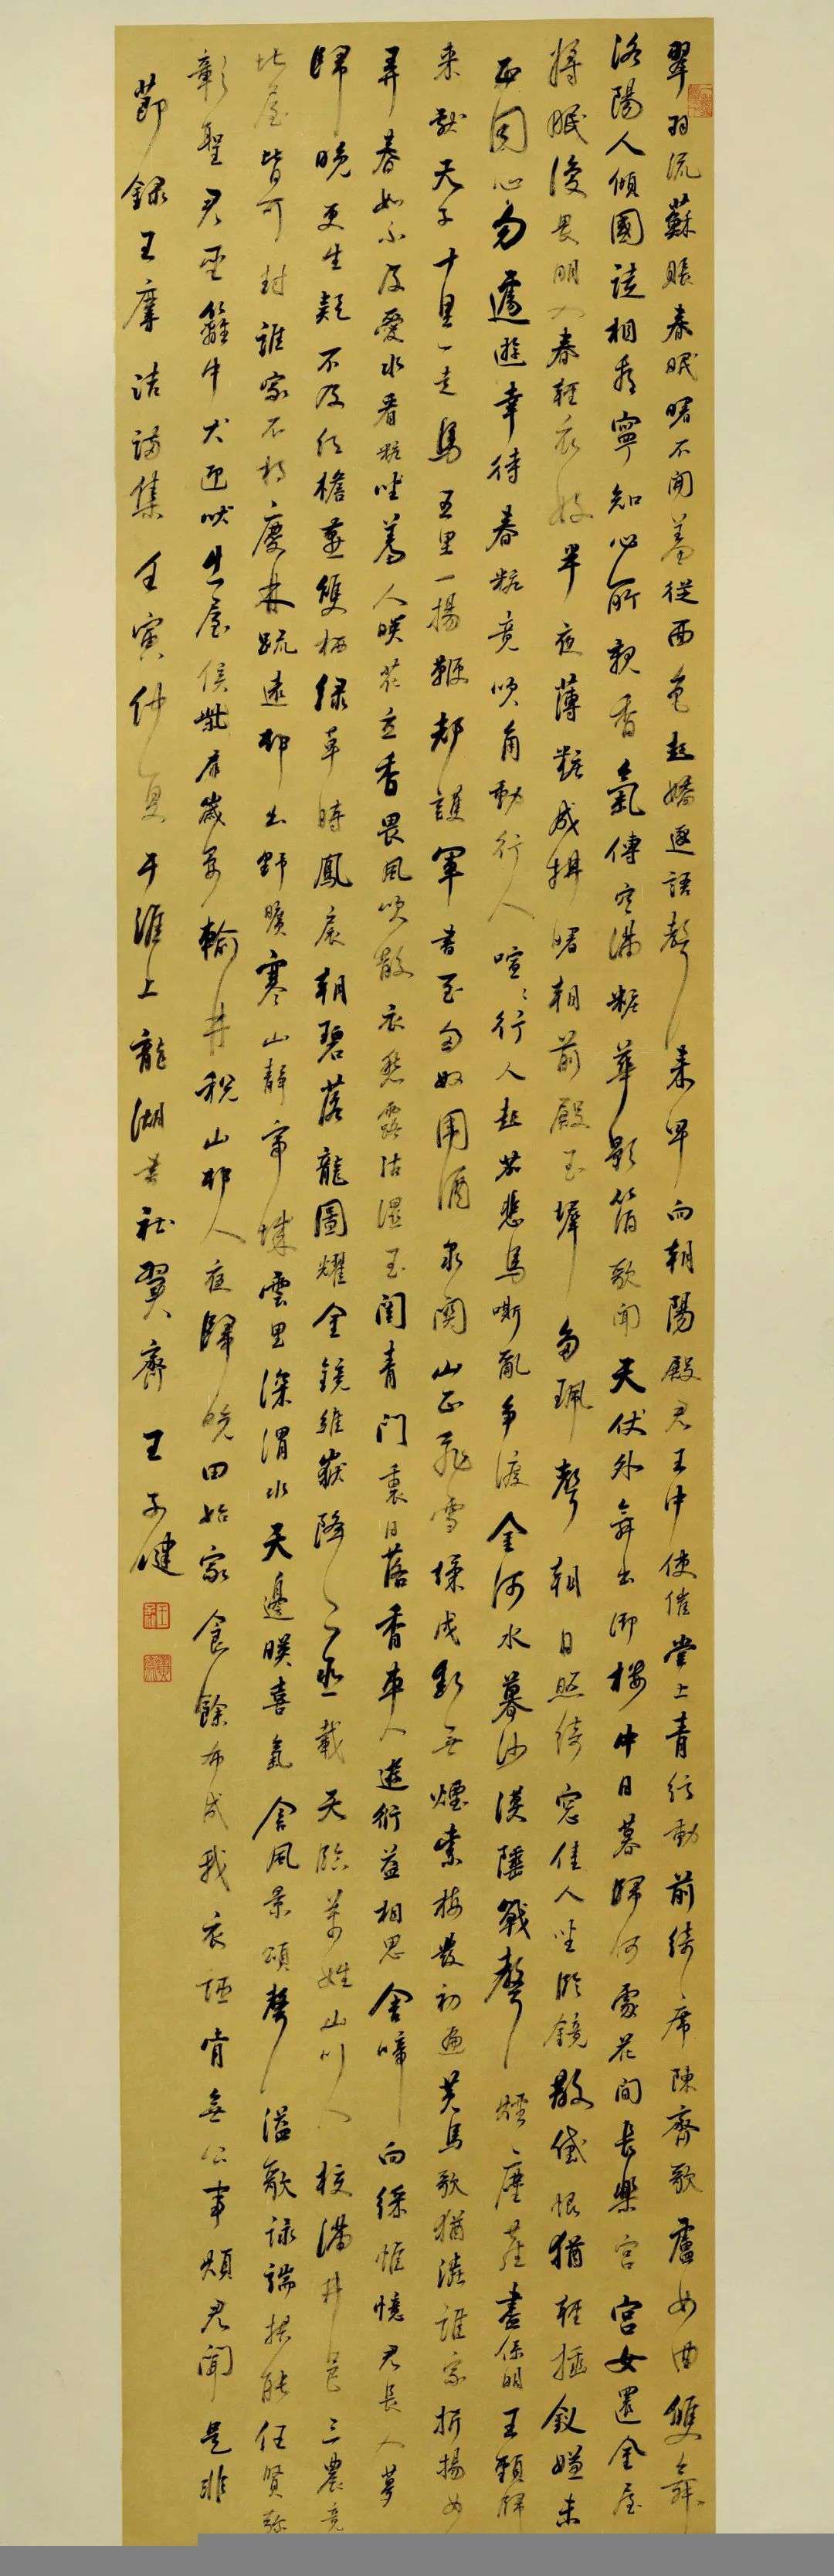 翠羽流蘇賬春眠曙不開羞從面色起嬌逐語聲来早向朝陽殿君王中使催堂上青弦動前綺席陳齊歌盧女曲雙舞
洛陽人傾國徒相看寧知心所親香氣傳空滿粧華影箔歌聞天仗外舞出御樓中日暮歸何處花間長樂宮宮女還金屋
將眠復畏明入春輕衣好半夜薄粧成拂曙朝前殿玉墀多珮聲朝日照綺窓佳人坐臨鏡散黛恨猶輕插釵嫌未
正同心勿遽遊幸待春粧竟吹角動行人喧喧行人起笳悲馬嘶亂争渡金河水暮沙漠陲戰聲煙塵裏盡係名王頸歸
来獻天子十里一走馬五里一揚鞭都護軍書至匈奴圍酒泉關山正飛雪烽戍斷無煙素梅發初遍黄鳥歌猶澁誰家折揚女
弄春如不及愛水看粧坐羞人映花立香畏風吹散衣愁露沾濕玉閨青門裏日落香車入遊衍益相思含啼向綵帷憶君長入夢
歸晚更生疑不及红檐燕雙栖绿草時鳳扆朝碧落龍圖耀金鏡維嶽降二臣載天臨萬姓山川八校满井邑三農竟
比屋皆可封誰家不相慶林疏遠邨出野曠寒山靜帝城雲里深渭水天邊映喜氣含風景頌聲溢歌詠端揆能任賢弥
彰聖君聖籬中犬迎吠出屋候柴扉歲晏輸井税山邨人夜歸晚田始家食餘布成我衣詎肯無公事煩君聞是非
節録王摩詰詩集壬寅仲夏于淮上龍湖書社翼齋王子健